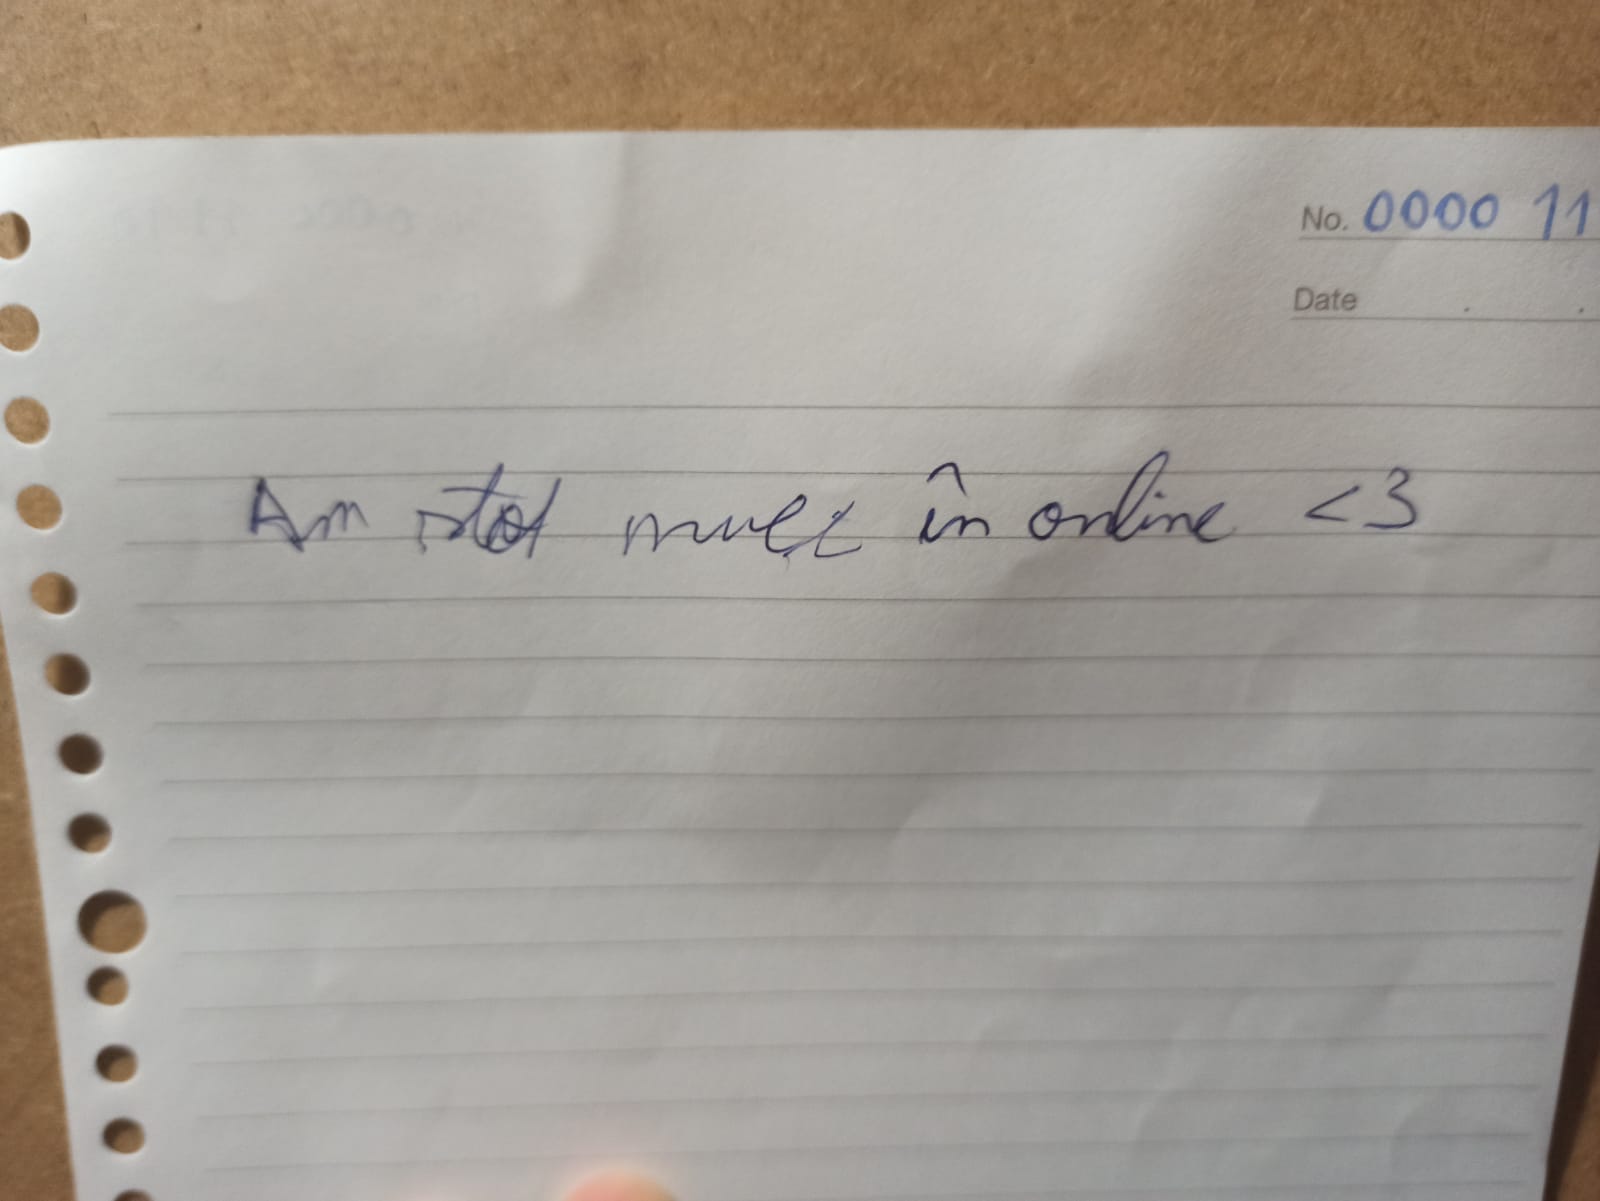 No. 0000 11
Date . .
Am stat mult în online <3